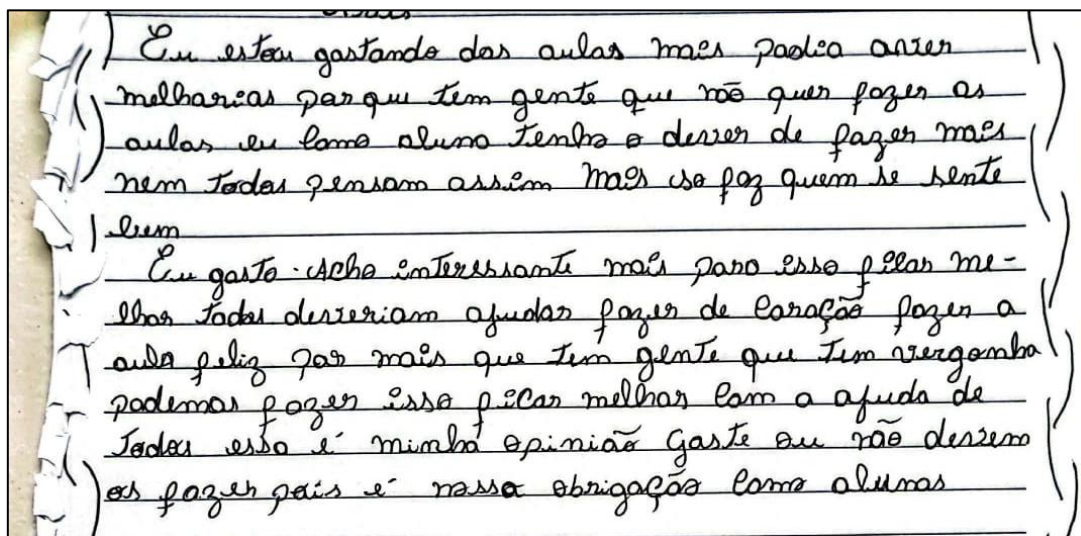 Eu estou gostando das aulas mais podia a ter
melhorias porque tem gente que não quer fazer as
aulas eu como aluno tenho o dever de fazer mais
nem todos pensam assim mais so faz quem se sente
bem
Eu gosto. Acho interessante mais para isso ficar me-
lhor todos deveriam ajudar fazer de coração fazer a
aula feliz por mais que tem gente que tem vergonha
podemos fazer isso ficar melhor com a ajuda de
todos essa é minha opinião goste ou não devem
os fazer pois é nossa obrigação como alunos